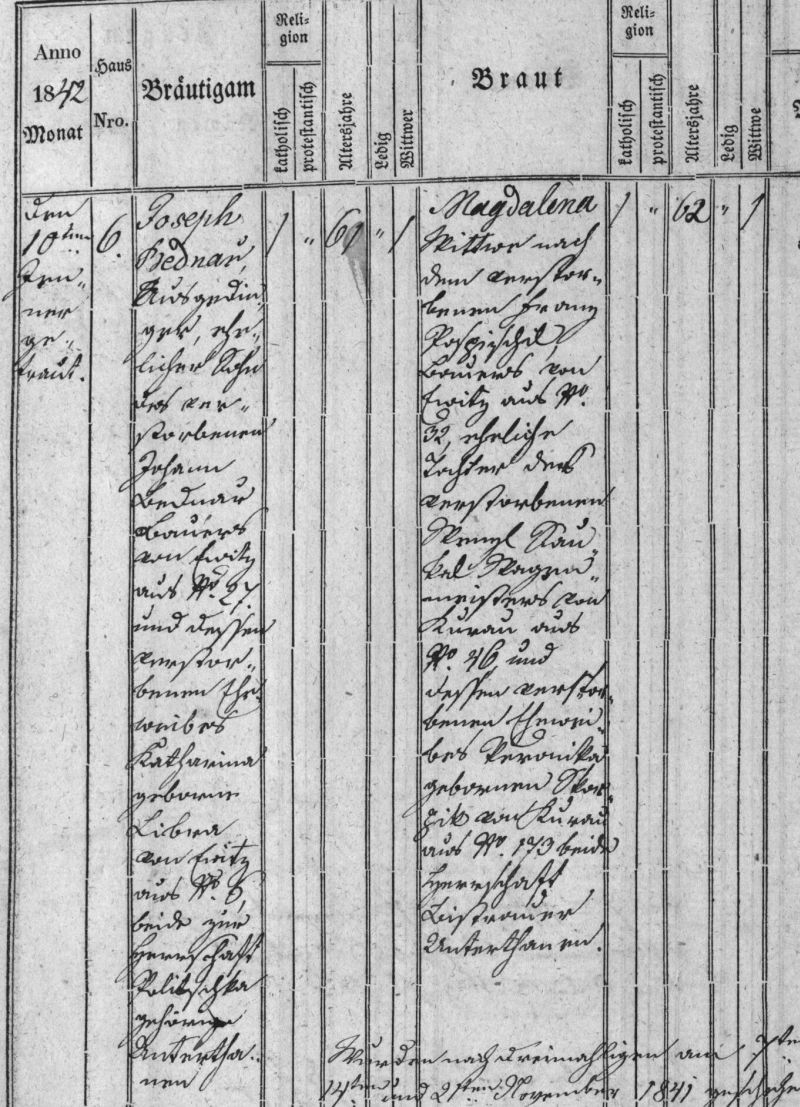 Anno
1842
Monat
Haus
Nro.
Bräutigam
Reli-
gion
katholisch
protestantisch
Altersjahre
Ledig
Wittwer
Braut
Reli-
gion
katholisch
protestantisch
Altersjahre
Ledig
Wittwe
den
10ten
Jen-
ner
ge-
traut.
6.
Joseph
Bednař,
Ausgedin-
ger, ehe-
licher Sohn
des ver-
storbenen
Johann
Bednar
Bauers
von
aus No. 27.
und dessen
verstor-
benen Ehe-
weibes
Katharina
geborne
Libra
von
aus No. 6,
beide zur
Herrschaft
Politschka
gehörige
Untertha-
nen
1 " 61 " 1
Magdalena
Wittwe nach
dem verstor-
benen Franz
Pospischil,
Bauers von
aus No.
32, eheliche
Tochter des
verstorbenen
Wenzl Kau-
kal Wagner-
meisters von
Kurau aus
No. 46, und
dessen verstor-
benen Ehewei-
bes Veronika
gebornen
von Kurau
aus No. 173 beide
Herrschaft
Bistrauer
Unterthanen.
1 " 62 " 1
Wurden nach dreimahligen am 7ten
14ten und 21ten November 1841